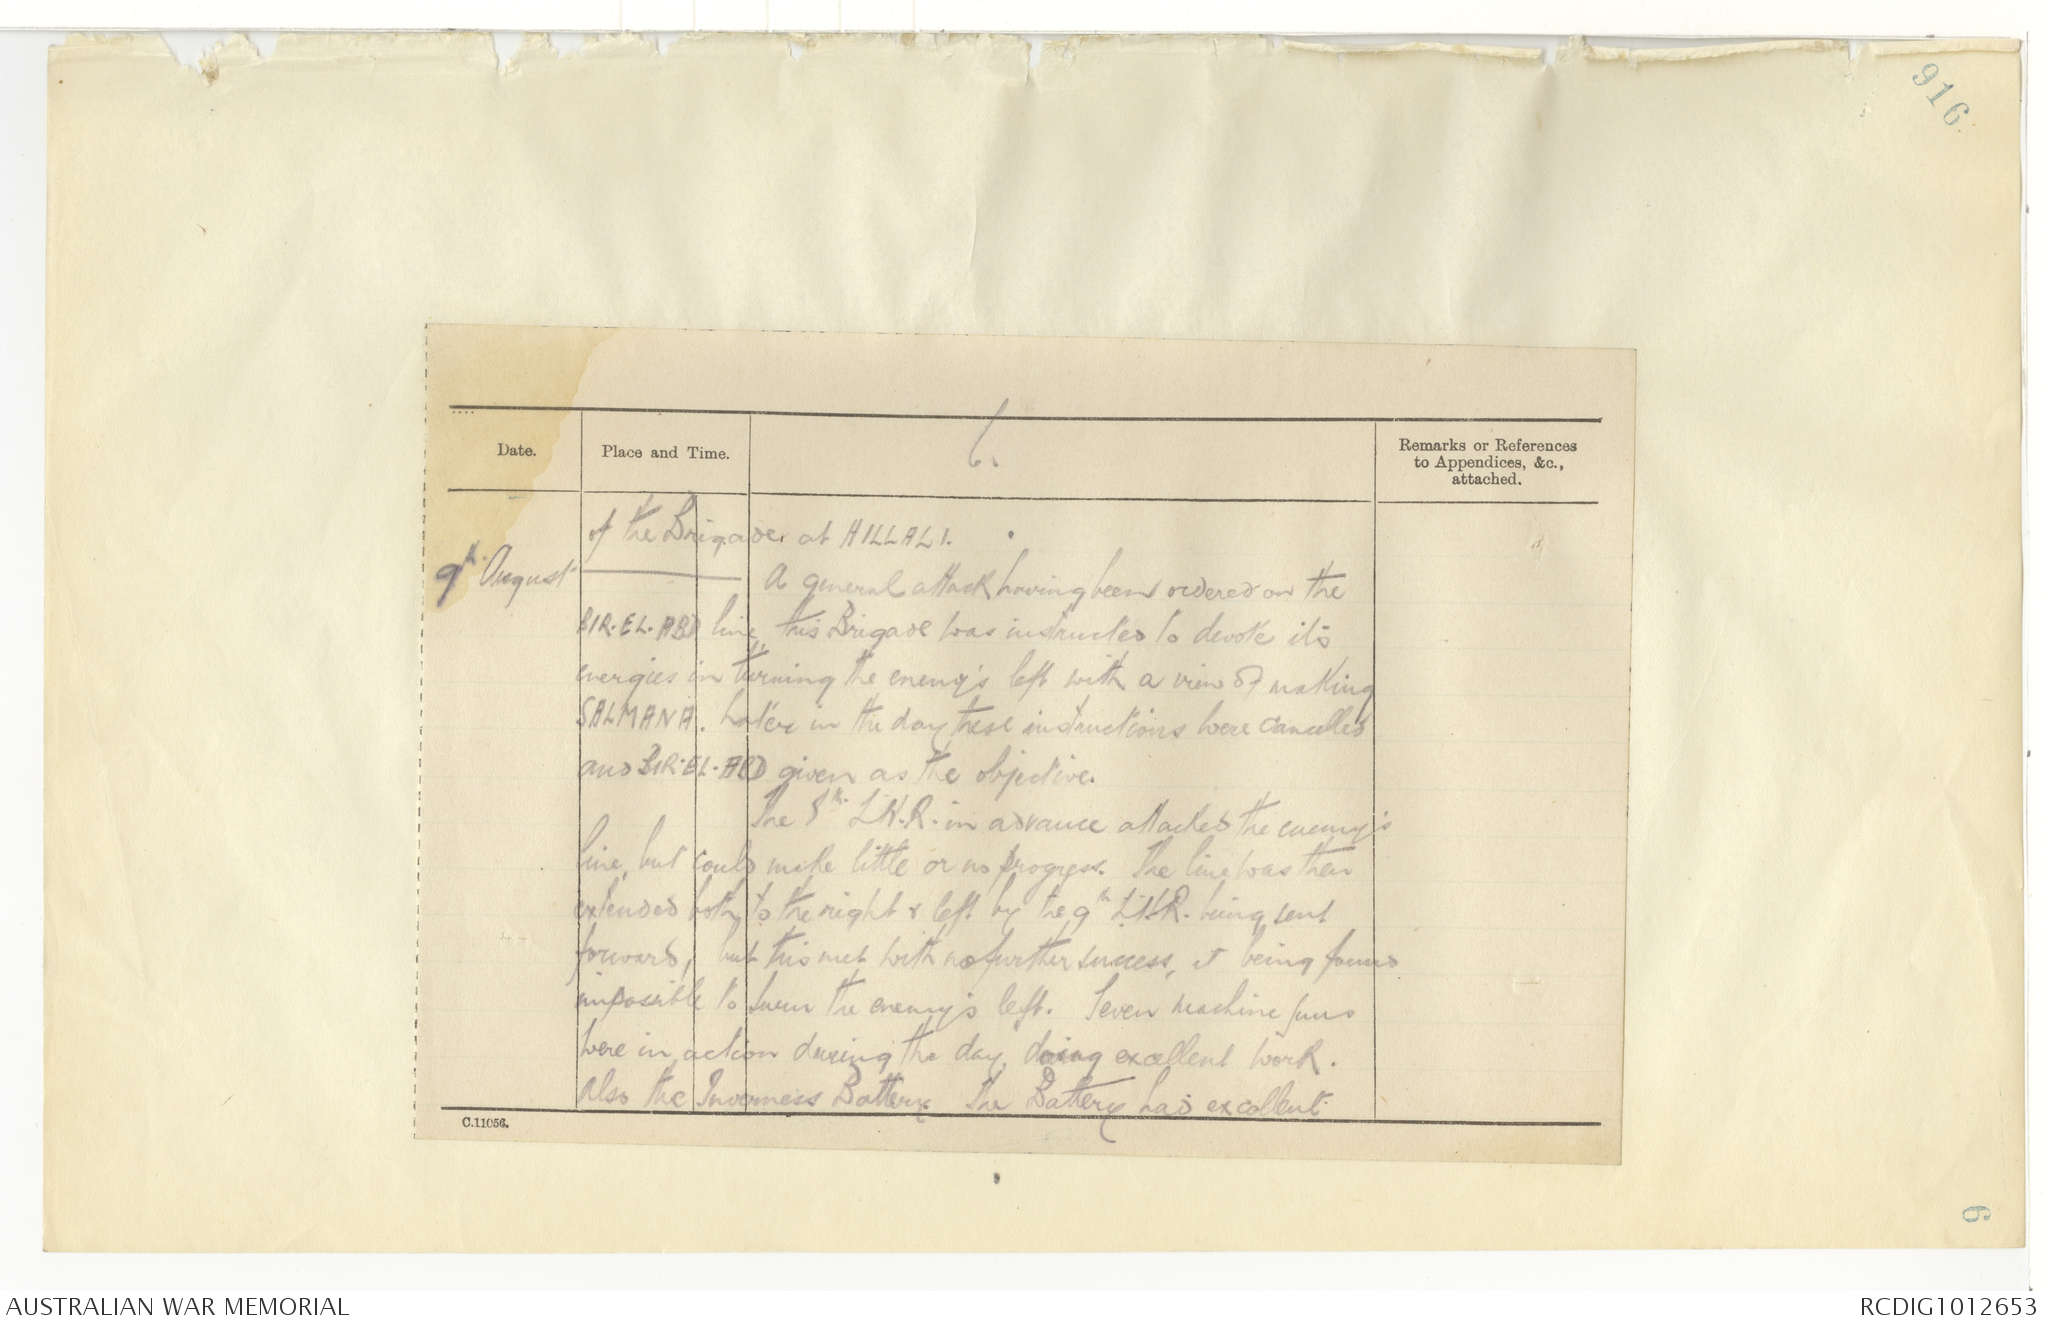 916
6.
Date.
Place and Time.
Remarks or References
to Appendices, &c.,
attached.
of the Brigade, at HILLALI.
9th August
A general attack having been ordered on the
BIR-EL-ABD line, this Brigade was instructed to devote its
energies in turning the enemy's left with a view of making
SALMANA. Later in the day these instructions were cancelled
and BIR-EL-ABD given as the objective.
The L.H.R. in advance attacked the enemy's
line, but could make little or no progress. The line was then
extended both to the right & left by the 9th L.H.R. being sent
forward, but this met with no further success, it being found
impossible to turn the enemy's left. Seven machine guns
were in action during the day, doing excellent work.
Also the Inverness Battery. The Battery had excellent
C.11056.
6
AUSTRALIAN WAR MEMORIAL
RCDIG1012653